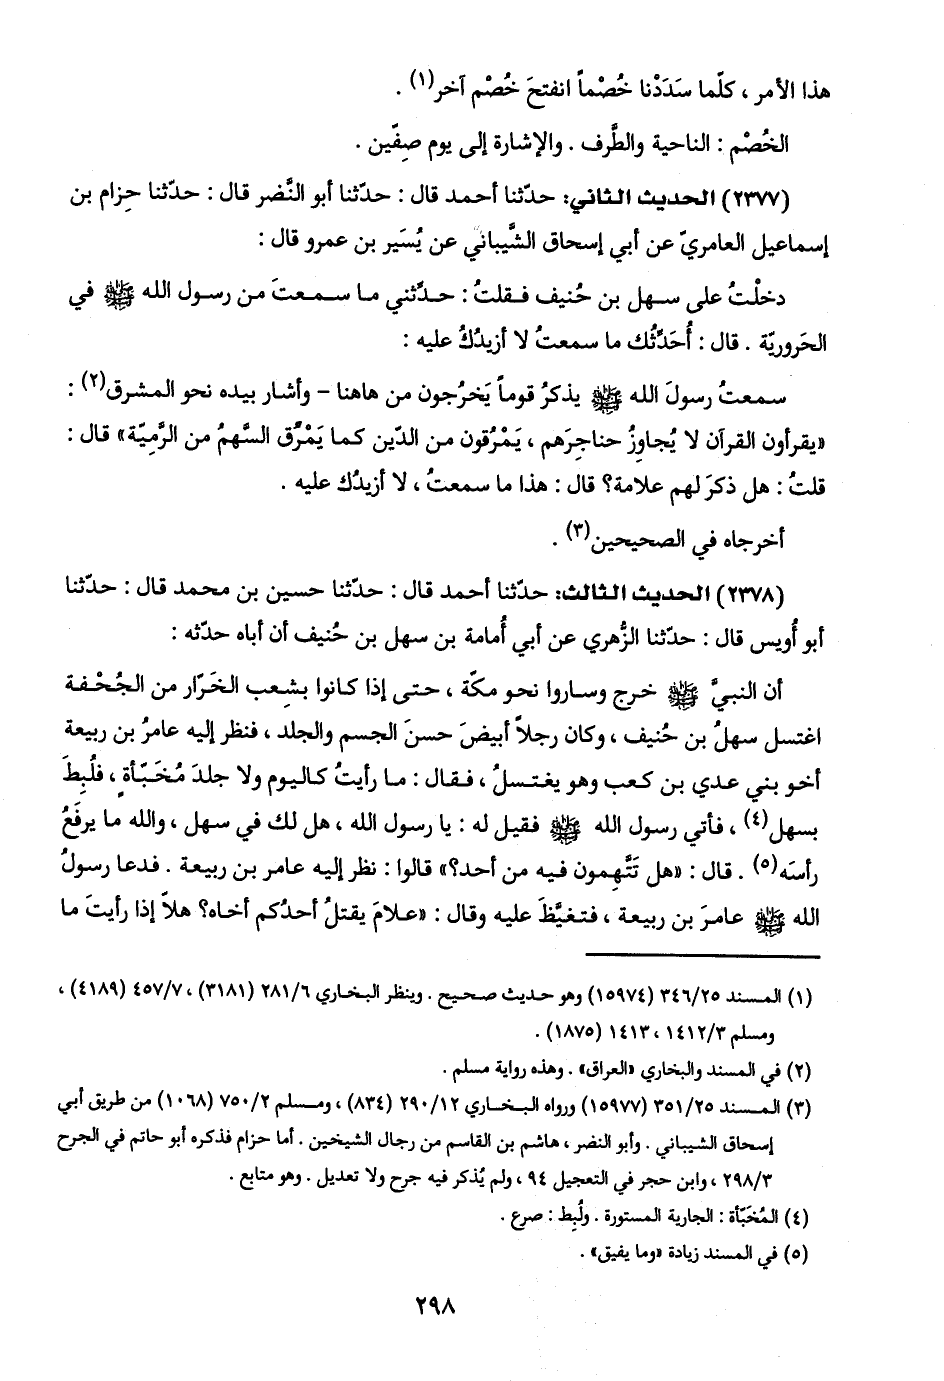 هذا الأمر ، كلّما سَدَدْنا خُصْماً انفتحَ خُصْم آخر(١) .
الخُصْم : الناحية والطَّرف . والإشارة إلى يوم صِفّين .
(٢٣٧٧) الحديث الثاني: حدّثنا أحمد قال : حدّثنا أبو النَّضر قال : حدّثنا حِزام بن
إسماعيل العامريّ عن أبي إسحاق الشَّيباني عن يُسَير بن عمرو قال :
دخلْتُ على سهل بن حُنيف فقلتُ : حدِّثني ما سمعتَ من رسول الله ﷺ في
الحَروريّة . قال : أُحَدِّثُك ما سمعتُ لا أزيدُكُ عليه :
سمعتُ رسولَ الله ﷺ يذكرُ قوماً يَخرُجون من هاهنا - وأشار بيده نحو المشرق(٢) :
«يقرأون القرآن لا يُجاوِزُ حناجرَهم ، يَمْرُقون من الدّين كما يَمْرُق السَّهمُ من الرَّمِيّة» قال :
قلتُ : هل ذكرَ لهم علامة؟ قال : هذا ما سمعتُ ، لا أزيدُك عليه .
أخرجاه في الصحيحين(٣) .
(٢٣٧٨) الحديث الثالث: حدّثنا أحمد قال : حدّثنا حسين بن محمد قال : حدّثنا
أبو أُويس قال : حدّثنا الزُّهري عن أبي أُمامة بن سهل بن حُنيف أن أباه حدّثه :
أن النبيَّ ﷺ خرج وساروا نحو مكّة ، حتى إذا كانوا بشِعب الخَرّار من الجُحْفة
اغتسل سهلُ بن حُنيف ، وكان رجلاً أبيضَ حسنَ الجسم والجلد ، فنظر إليه عامرُ بن ربيعة
أخو بني عدي بن كعب وهو يغتسلُ ، فقال : ما رأيتُ كاليوم ولا جلدَ مُخَبّأة ، فلُبِطَ
بسهل(٤) ، فأتي رسول الله ﷺ فقيل له : يا رسول الله ، هل لك في سهل ، والله ما يرفَعُ
رأسَه(٥) . قال : «هل تَتَّهِمون فيه من أحد؟» قالوا : نظر إليه عامر بن ربيعة . فدعا رسولُ
الله ﷺ عامرَ بن ربيعة ، فتغيَّظَ عليه وقال : «علامَ يقتلُ أحدُكم أخاه؟ هلاّ إذا رأيتَ ما
(١) المسند ٣٤٦/٢٥ (١٥٩٧٤) وهو حديث صحيح . وينظر البخاري ٢٨١/٦ (٣١٨١) ، ٤٥٧/٧ (٤١٨٩) ،
ومسلم ١٤١٢/٣ ، ١٤١٣ (١٨٧٥) .
(٢) في المسند والبخاري «العراق» . وهذه رواية مسلم .
(٣) المسند ٣٥١/٢٥ (١٥٩٧٧) ورواه البخاري ٢٩٠/١٢ (٨٣٤) ، ومسلم ٧٥٠/٢ (١٠٦٨) من طريق أبي
إسحاق الشيباني . وأبو النضر ، هاشم بن القاسم من رجال الشيخين . أما حزام فذكره أبو حاتم في الجرح
٢٩٨/٣ ، وابن حجر في التعجيل ٩٤ ، ولم يُذكر فيه جرح ولا تعديل . وهو متابع .
(٤) المُخَبّأة : الجارية المستورة . ولُبِط : صرع .
(٥) في المسند زيادة «وما يفيق» .
٢٩٨